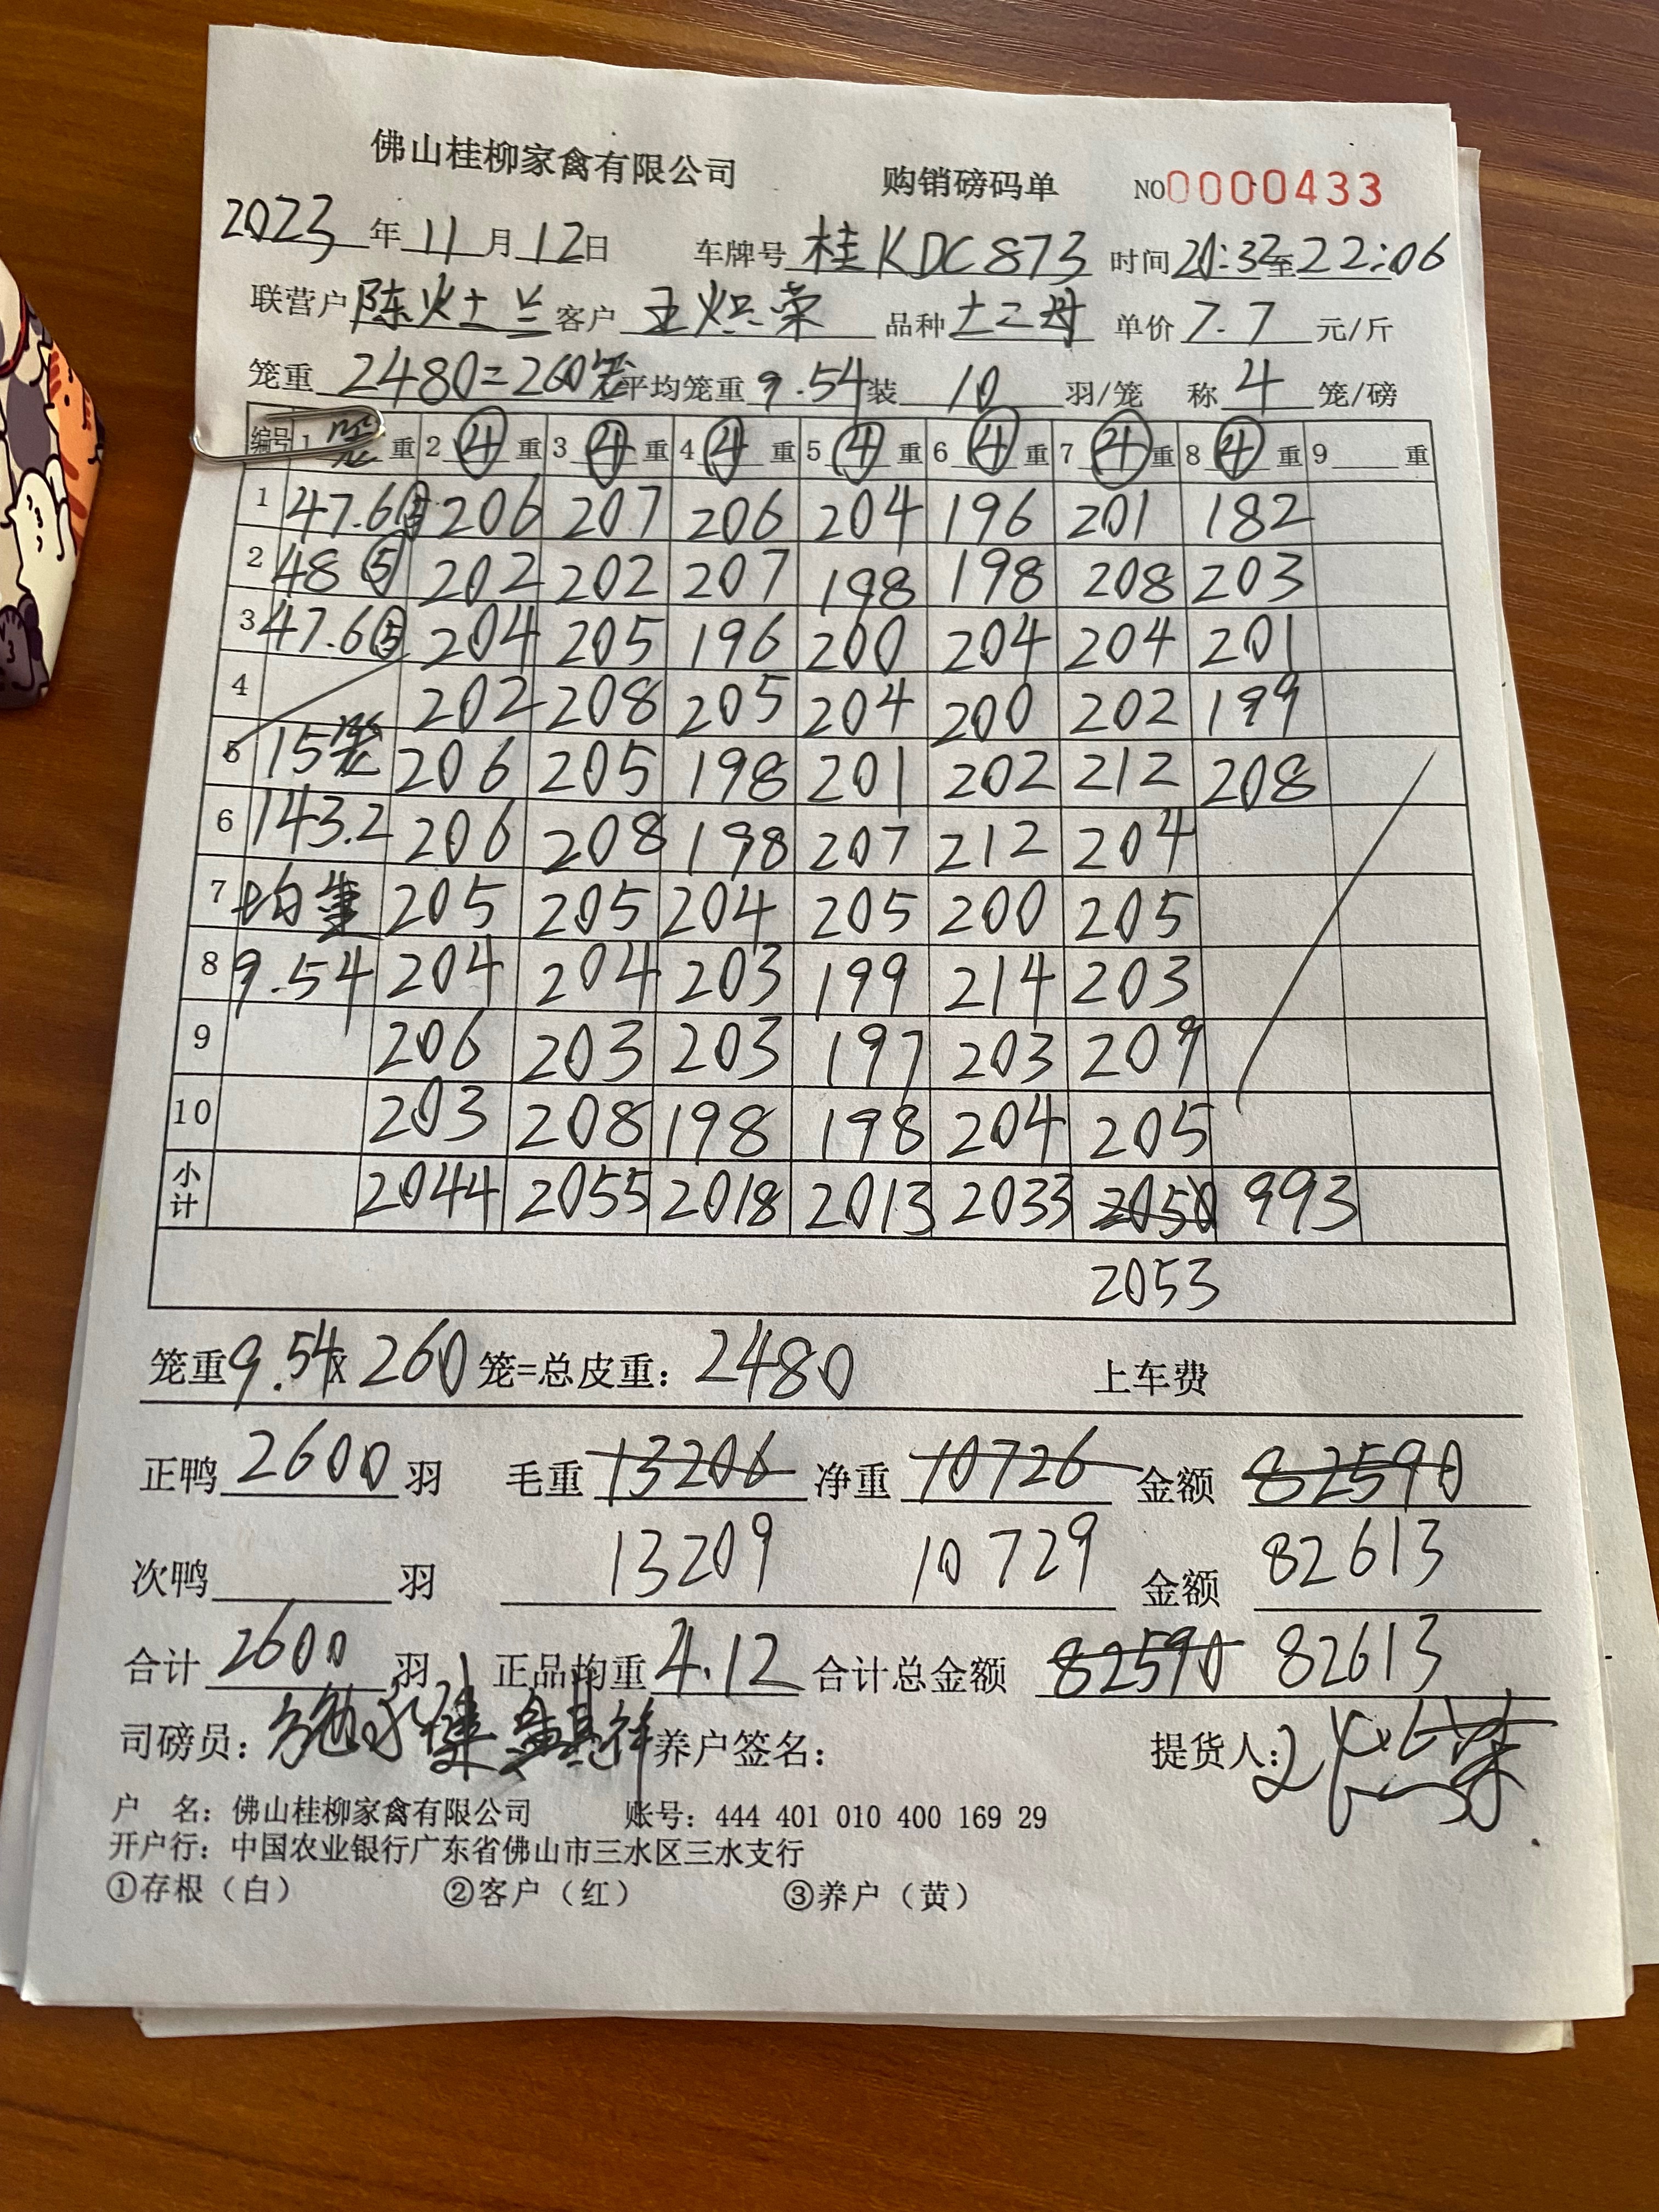 佛山桂柳家禽有限公司 购销磅码单 NO0000433
2023年11月12日 车牌号桂KDC873 时间20:32至22:06
联营户 陈火土兰 客户 王炽荣 品种 土二母 单价7.7元/斤
笼重 2480=260笼 平均笼重9.54装10羽/笼 称4笼/磅
编号 1笼重 2④重 3④重 4④重 5④重 6④重 7④重 8④重 9重
1 47.6⑤ 206 207 206 204 196 201 182
2 48⑤ 202 202 207 198 198 208 203
3 47.6⑤ 204 205 196 200 204 204 201
4 202 208 205 204 200 202 199
5 15笼 206 205 198 201 202 212 208
6 143.2 206 208 198 207 212 204
7 均重 205 205 204 205 200 205
8 9.54 204 204 203 199 214 203
9 206 203 203 197 203 209
10 203 208 198 198 204 205
小计 2044 2055 2018 2013 2033 2050 993
2053
笼重9.54x260笼=总皮重：2480 上车费
正鸭2600羽 毛重13206 净重10726 金额82590
次鸭羽 13209 10729 金额82613
合计2600羽 正品均重4.12 合计总金额82590 82613
司磅员： 养户签名： 提货人：
户 名：佛山桂柳家禽有限公司 账号：444 401 010 400 169 29
开户行：中国农业银行广东省佛山市三水区三水支行
①存根（白） ②客户（红） ③养户（黄）